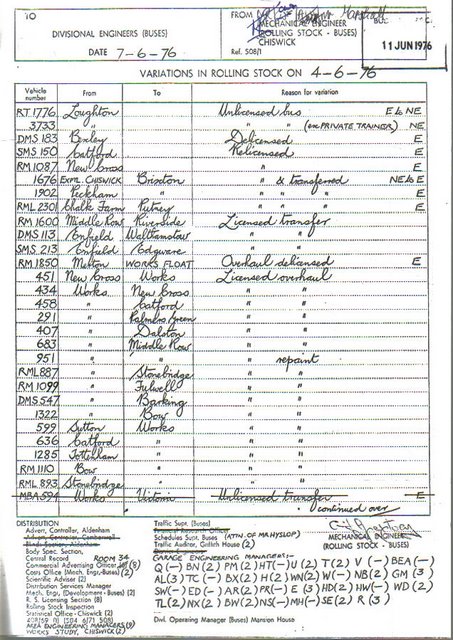 TO
DIVISIONAL ENGINEERS (BUSES)
DATE 7-6-76
FROM
MECHANICAL ENGINEER
(ROLLING STOCK - BUSES)
CHISWICK
Ref. 508/1
11 JUN 1976
VARIATIONS IN ROLLING STOCK ON 4-6-76
Vehicle number From To Reason for variation
RT 1776 Loughton Unlicensed bus E to NE
3733 " " " (ex PRIVATE TRAINER) NE
DMS 183 Bexley Delicensed E
SMS 150 Catford Relicensed E
RM 1087 New Cross " E
1676 EXPTL CHISWICK Brixton " & transferred NE to E
1902 Peckham " " " " E
RML 2301 Chalk Farm Putney " " " E
RM 1600 Middle Row Riverside Licensed transfer
DMS 113 Enfield Walthamstow " "
SMS 213 Enfield Edgware " "
RM 1850 Merton WORKS FLOAT Overhaul delicensed E
451 New Cross Works Licensed overhaul
434 Works New Cross " "
458 " Catford " "
291 " Palmers Green " "
407 " Dalston " "
683 " Middle Row " "
951 " " " repaint
RML 887 " Stonebridge " "
RM 1099 " Fulwell " "
DMS 547 " Barking " "
1322 " Bow " "
599 Sutton Works " "
636 Catford " " "
1285 Tottenham " " "
RM 1110 Bow " " "
RML 893 Stonebridge " " "
MBA 594 Works Victoria Unlicensed transfer E
Continued over
DISTRIBUTION
Advert. Controller, Aldenham
Advert. Controller, Camberwell
Body Spec. Section,
Central Record ROOM 34
Commercial Advertising Officer (8)
Costs Office (Mech. Engr.-Buses) (2)
Scientific Adviser (2)
Distribution Services Manager
Mech. Engr. (Development - Buses) (2)
R. S. Licensing Section (8)
Rolling Stock Inspection
Technical Office - Chiswick (2)
AREA ENGINEERING MANAGERS (9)
WORKS STUDY, CHISWICK (2)
Traffic Supt. (Buses)
Schedules Supt. (Buses) (ATTN. OF MA HYSLOP)
Traffic Auditor, Griffith House (2)
MECHANICAL ENGINEER
(ROLLING STOCK - BUSES)
GARAGE ENGINEERING MANAGERS:-
Q (-) BN (2) PM (2) HT (-) U (2) T (2) V (-) BEA (-)
AL (3) TC (-) BX (2) H (2) WN (2) W (-) NB (2) GM (3
SW (-) ED (-) AR (2) PR (-) E (3) HD (2) HW (-) WD (2)
TL (2) NX (2) BW (2) NS (-) MH (-) SE (2) R (3)
Divl. Operating Manager (Buses) Mansion House